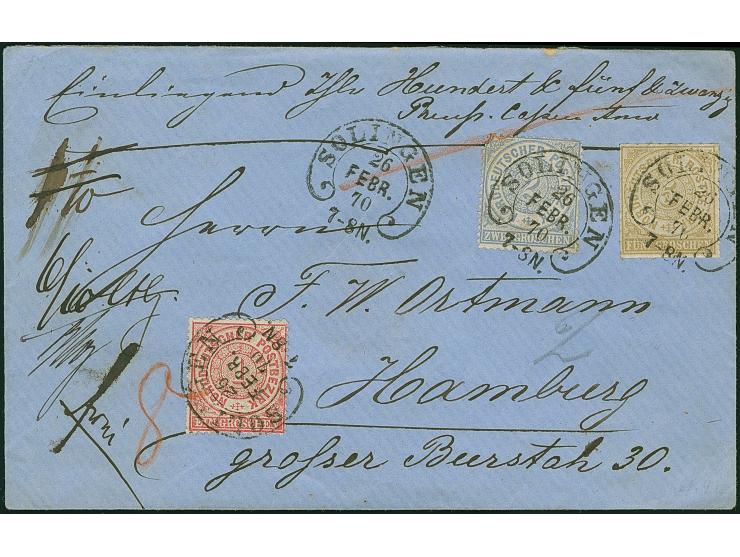 Einliegend Thlr Hundert & fünf & zwanzig
Preuß. Cassen Anw
SOLINGEN
26
FEBR.
70
7-8N.
NORDDEUTSCHER POSTBEZIRK
ZWEI GROSCHEN
SOLINGEN
26
FEBR.
70
7-8N.
FÜNF GROSCHEN
SOLINGEN
26
FEBR.
7-8N.
Herrn
F. W. Ortmann
2
Hamburg
NORDDEUTSCHER POSTBEZIRK
EIN GROSCHEN
SOLINGEN
26
FEBR.
8
frei
grosser Burstah 30.